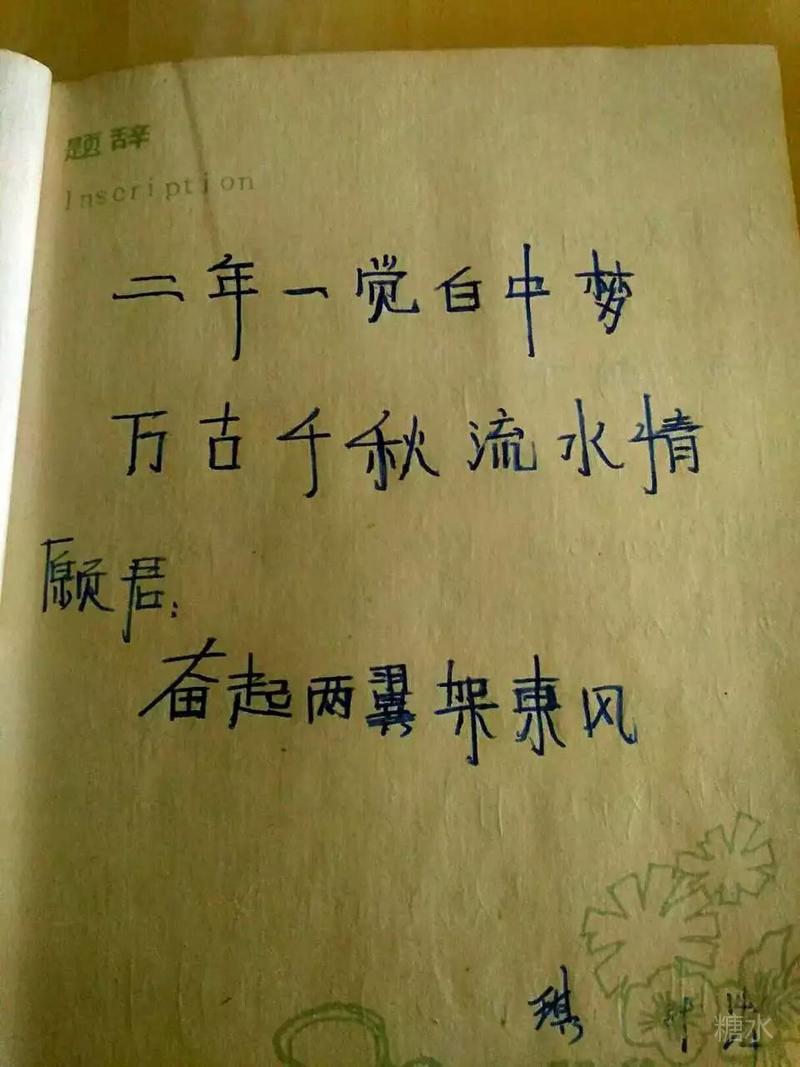 题辞
Inscription
二年一觉白中梦
万古千秋流水情
愿君:
奋起两翼架東风
琪
糖水